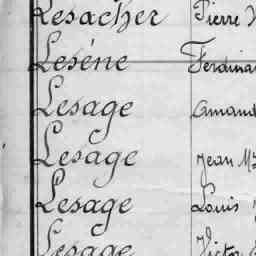 Lesacher Pierre
Leséne Ferdinan
Lesage Amand
Lesage Jean M
Lesage Louis
Lesage Victor